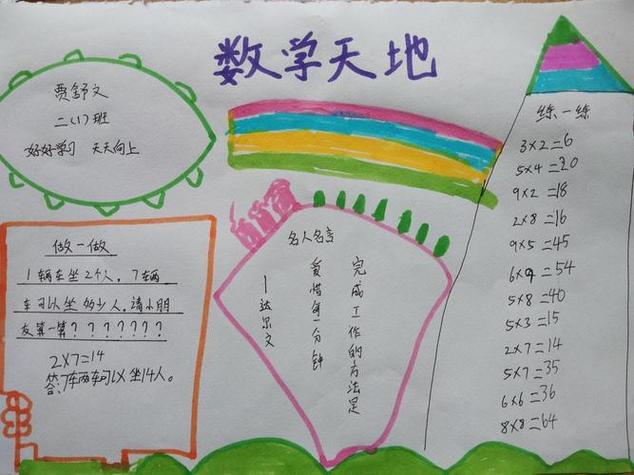 数学天地
贾舒文
二(1)班
好好学习 天天向上
做一做
1辆车坐2个人，7辆
车可以坐多少人，请小朋
友算一算???????
2×7=14
答:7车两车可以坐14人。
名人名言
完成工作的方法是
爱惜每一分钟
—达尔文
练一练
3×2=6
5×4=20
9×2=18
2×8=16
9×5=45
6×9=54
5×8=40
5×3=15
2×7=14
5×7=35
6×6=36
8×8=64